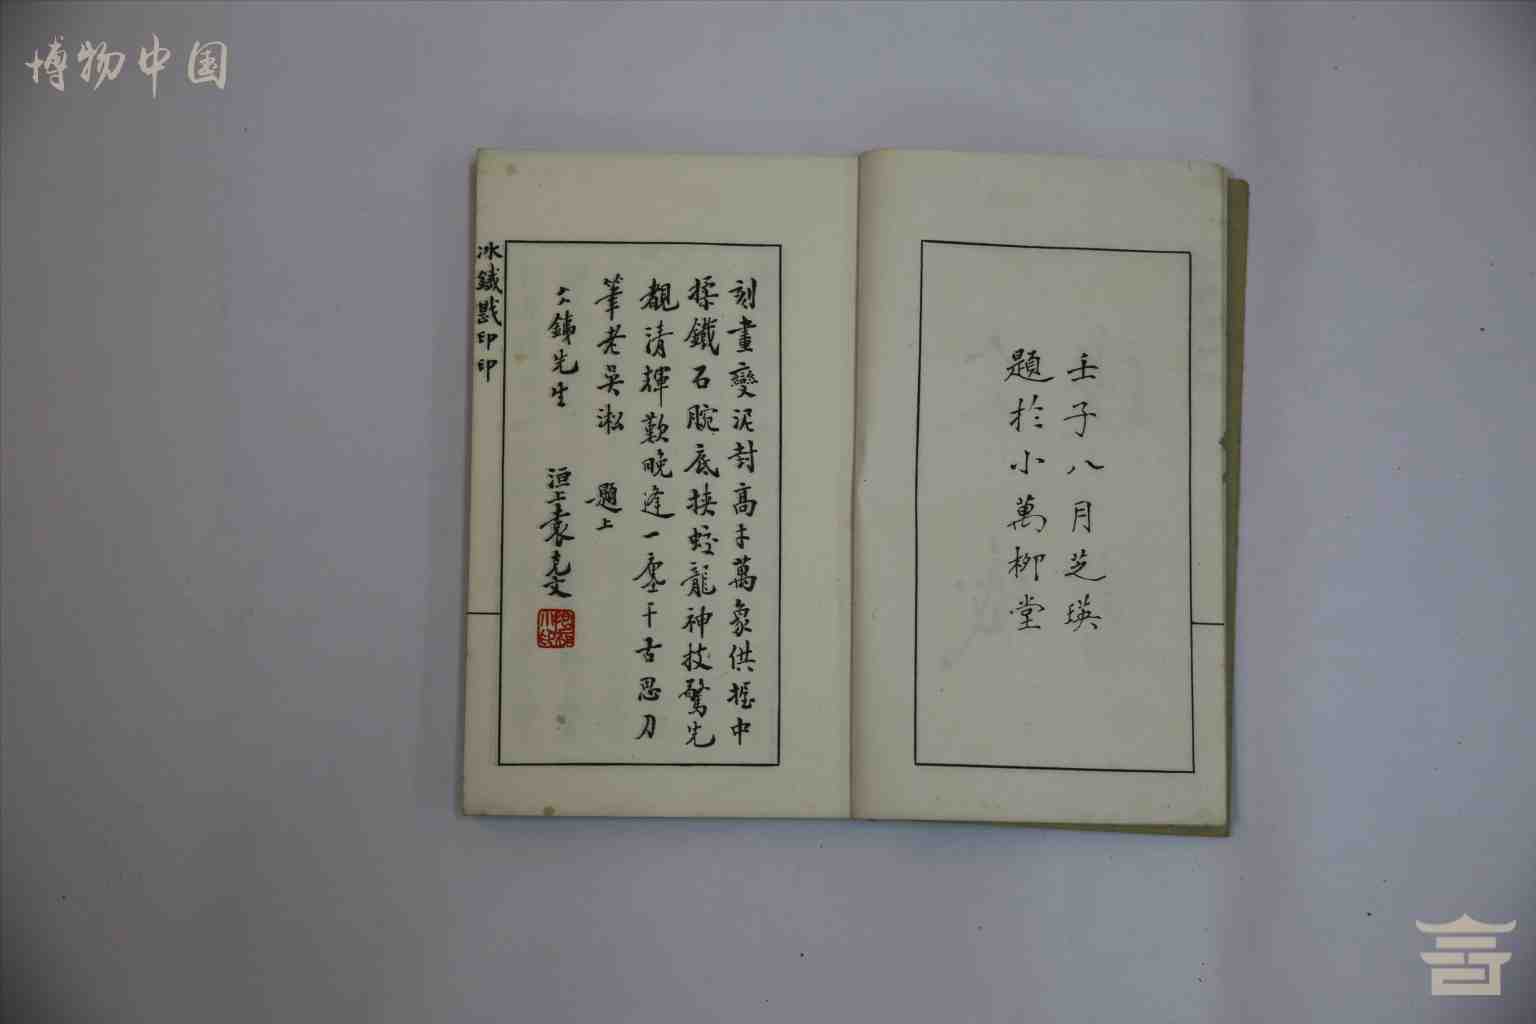 博物中国
壬子八月芝瑛
題於小萬柳堂
刻畫變泥封高手萬象供握中
揉鐵石腕底挟蛟龍神技驚先
覩清輝歎晚逢一塵千古思刀
筆老吳淞 題上
大銕先生 洹上袁克文
冰鐵戡印印